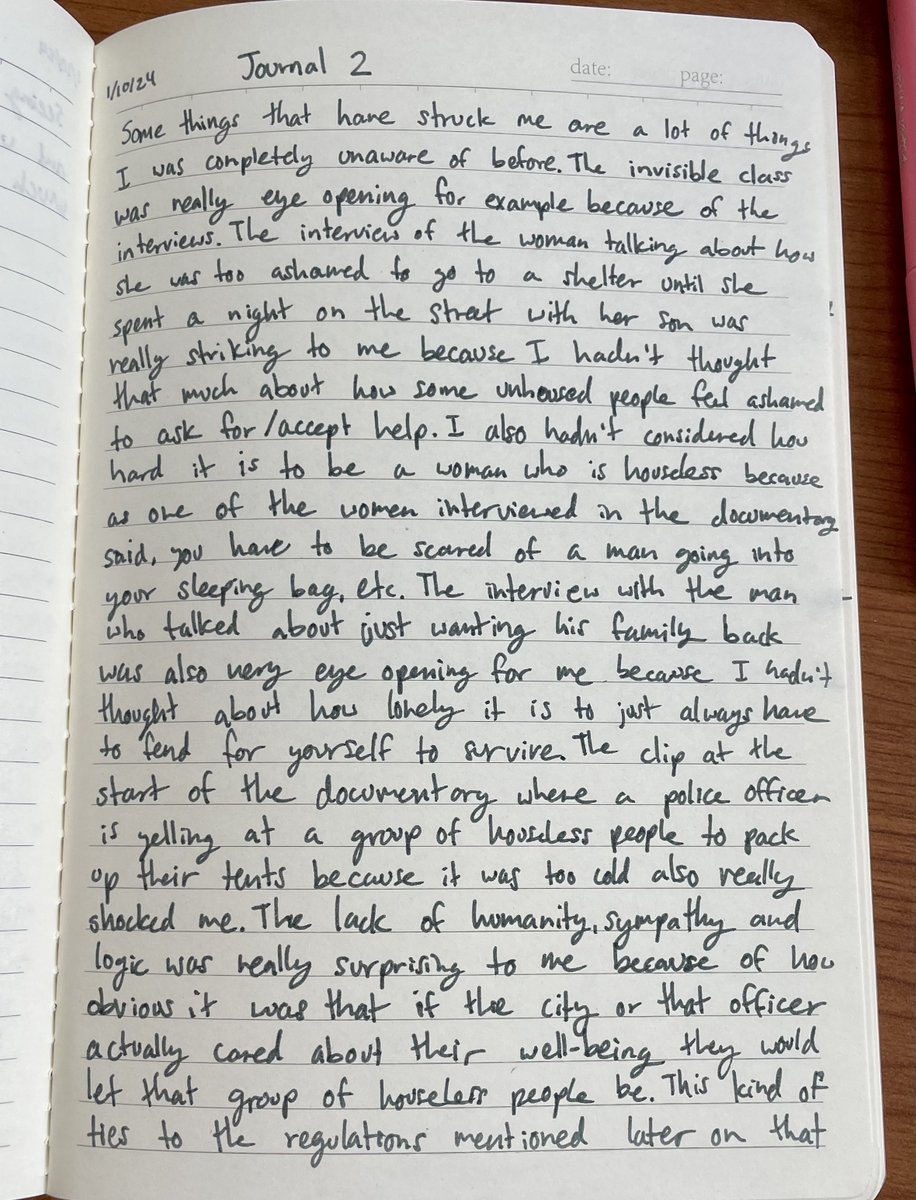 1/10/24 Journal 2 date: page:
Some things that have struck me are a lot of things
I was conpletely unaware of before. The invisible class
was really eye opening for example because of the
interviews. The interview of the woman talking about how
she was too ashamed to go to a shelter until she
spent a night on the street with her son was
really striking to me because I hadn't thought
that much about how some unhoused people feel ashamed
to ask for/accept help. I also hadn't considered how
hard it is to be a woman who is houseless because
as one of the women interviewed in the documentary
said, you have to be scared of a man going into
your sleeping bag, etc. The interview with the man
who talked about just wanting his family back
was also very eye opening for me because I hadn't
thought about how lonely it is to just always have
to fend for yourself to survive. The clip at the
start of the documentary where a police officer
is yelling at a group of houseless people to pack
up their tents because it was too cold also really
shocked me. The lack of humanity, sympathy and
logic was really surprising to me because of how
obvious it was that if the city or that officer
actually cared about their well-being they would
let that group of houseless people be. This kind of
ties to the regulations mentioned later on that